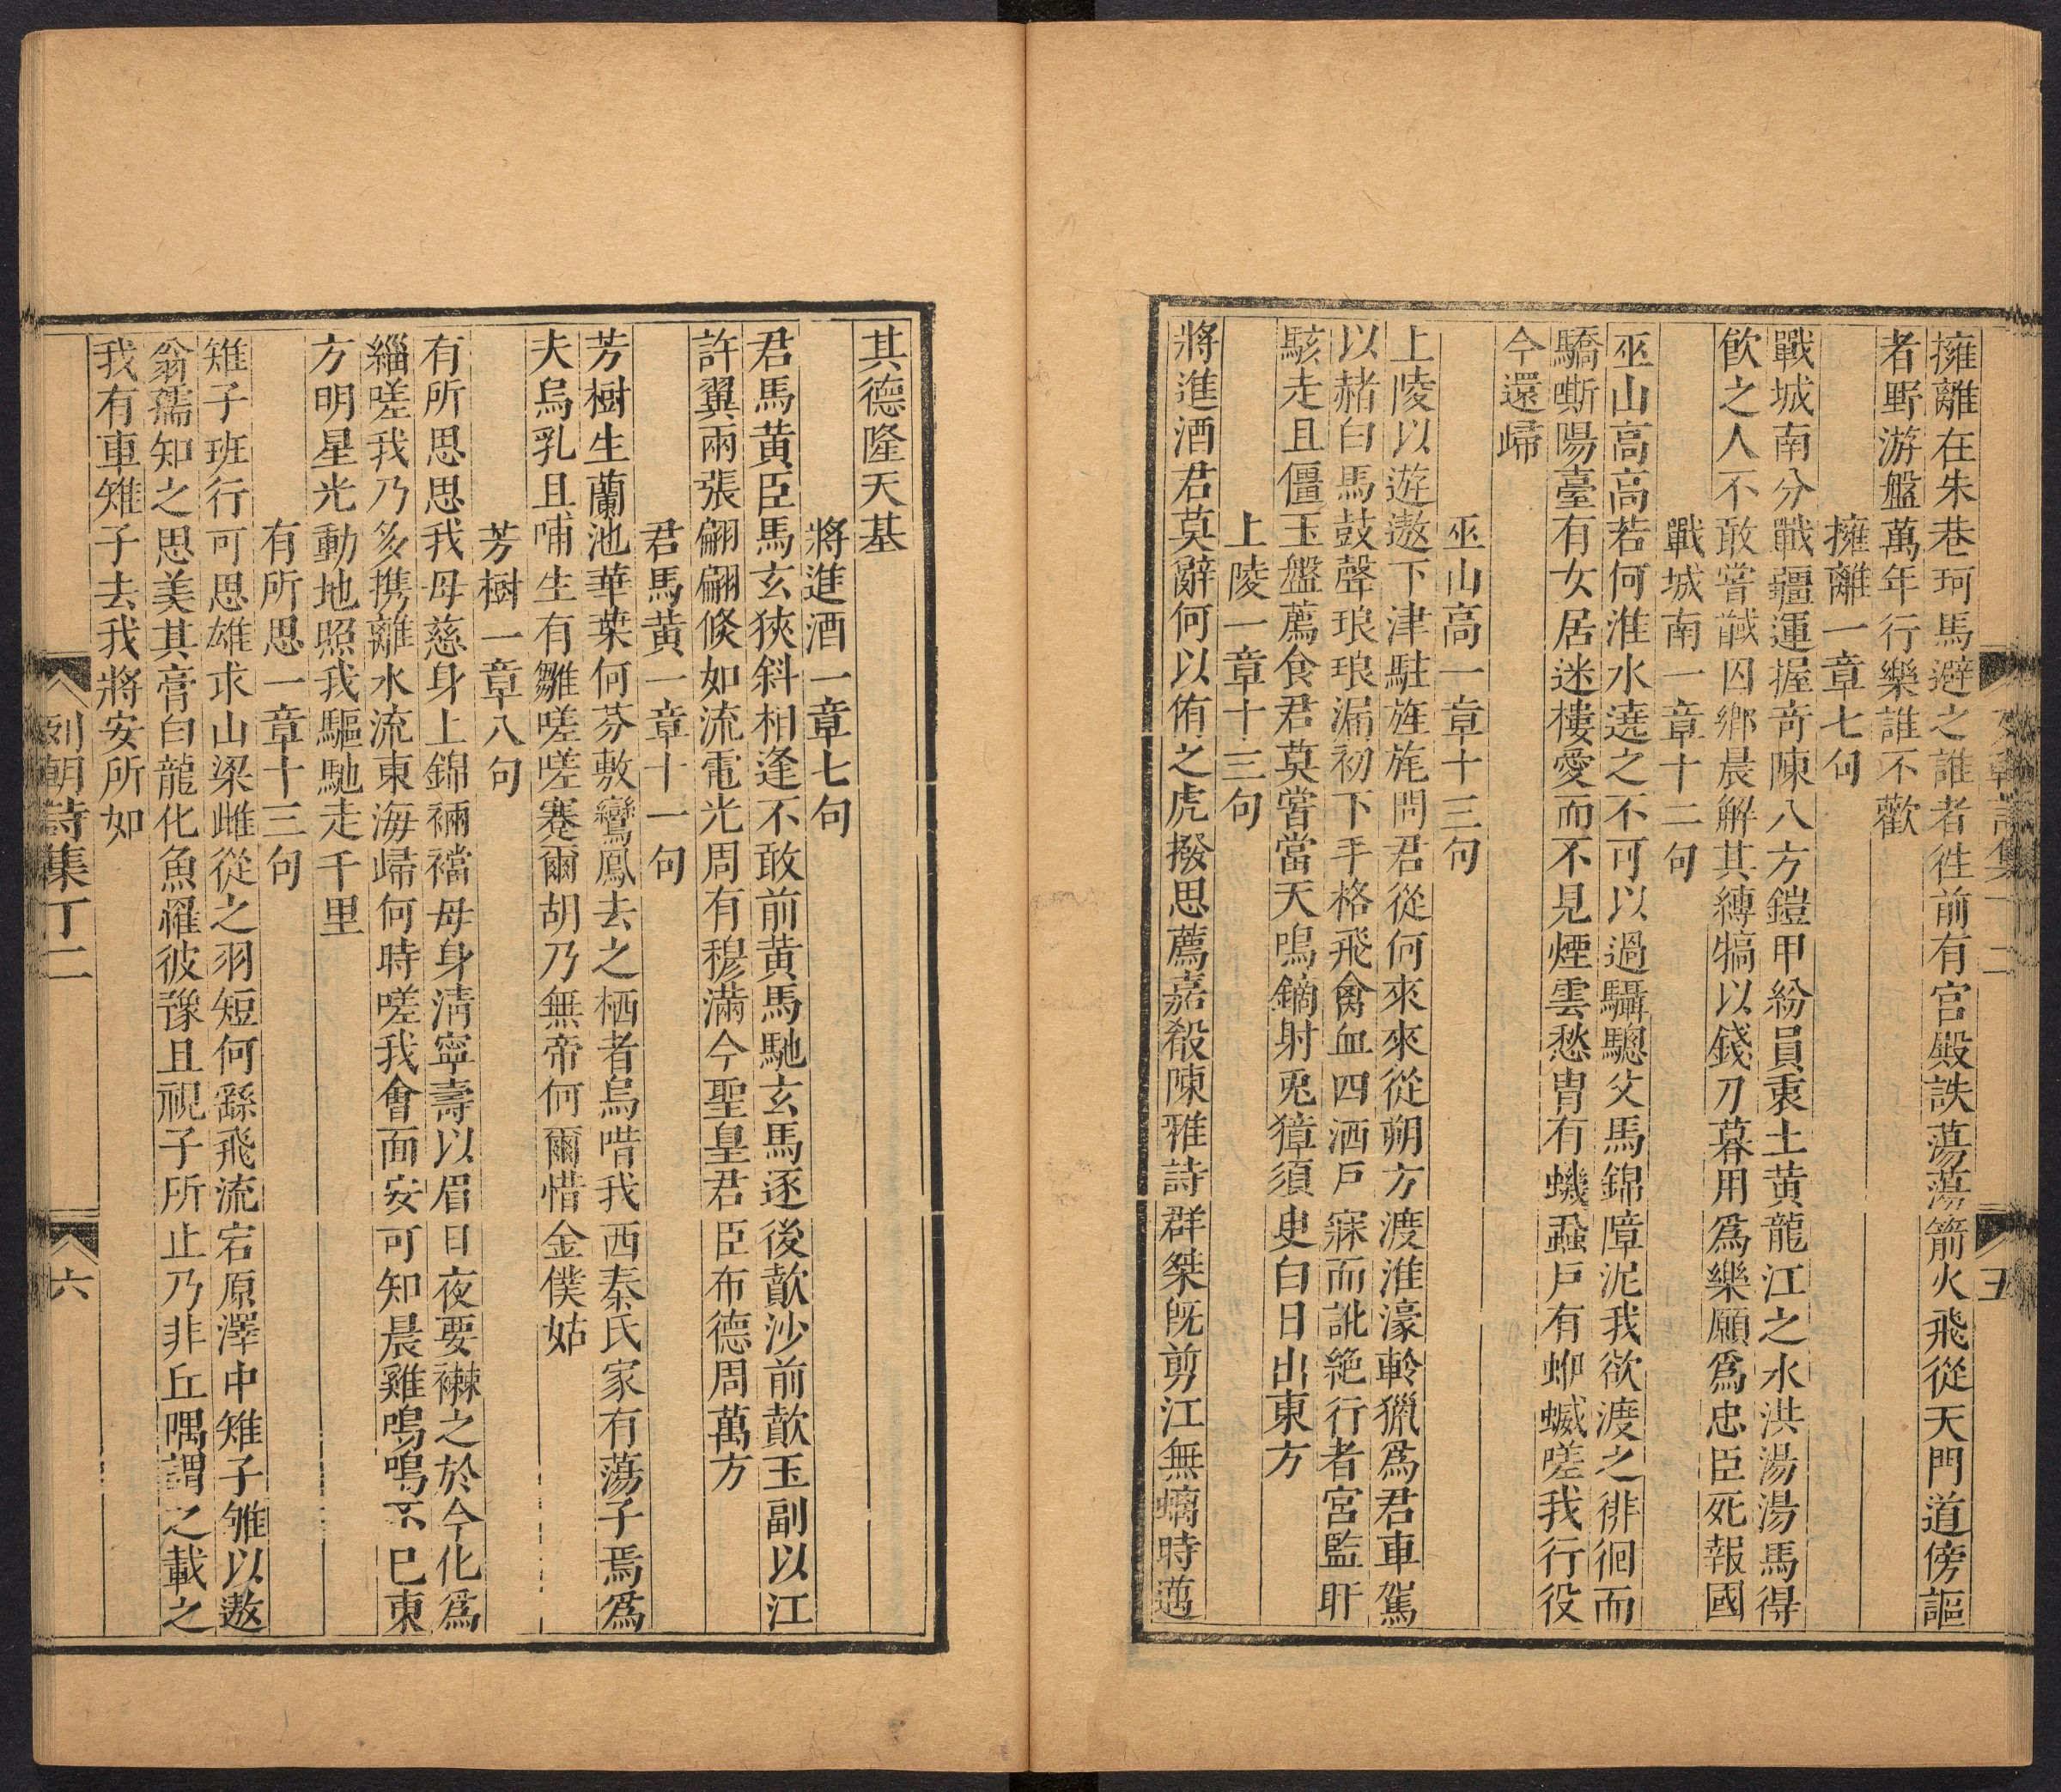 擁離在朱巷珂馬避之誰者徃前有宮殿詄蕩蕩箭火飛從天門道傍謳
者野游盤萬年行樂誰不歡
擁離一章七句
戰城南分戰疆運握奇陳八方鎧甲紛員裹土黄龍江之水洪湯湯馬得
飲之人不敢嘗馘囚鄉晨解其縛犒以錢刀暮用爲樂願爲忠臣死報國
戰城南一章十二句
巫山高高若何淮水遶之不可以過驪驄父馬錦障泥我欲渡之徘徊而
驕嘶陽臺有女居迷樓愛而不見煙雲愁胄有蟣蝨戶有蛜蝛嗟我行役
今還歸
巫山高一章十三句
上陵以遊遨下津駐旌旄問君從何來來從朔方渡淮濠軨獵爲君車駕
以赭白馬鼓聲琅琅漏初下手格飛禽血四洒戶寐而訿絶行者宮監盱
駭走且僵玉盤薦食君莫嘗當天鳴鏑射兎獐須臾白日出東方
上陵一章十三句
將進酒君莫辭何以侑之虎撥思薦嘉殽陳雅詩群桀旣剪江無螭時邁
其德隆天基
將進酒一章七句
君馬黄臣馬玄狹斜相逢不敢前黄馬馳玄馬逐後歕沙前歕玉副以江
許翼兩張翩翩倐如流電光周有穆滿今聖皇君臣布德周萬方
君馬黄一章十一句
芳樹生蘭池華葉何芬敷鸞鳳去之栖者烏唶我西秦氏家有蕩子焉爲
夫烏乳且哺生有雛嗟嗟蹇爾胡乃無帝何爾惜金僕姑
芳樹一章八句
有所思思我母慈身上錦裲襠母身淸寧壽以眉日夜要襋之於今化爲
緇嗟我乃多携離水流東海歸何時嗟我會面安可知晨雞鳴鳴不巳東
方明星光動地照我驅馳走千里
有所思一章十三句
雉子班行可思雄求山梁雌從之羽短何繇飛流宕原澤中雉子雏以遨
翁孺知之思美其膏白龍化魚罹彼豫且視子所止乃非丘隅謂之載之
我有車雉子去我將安所如
列朝詩集丁二
六